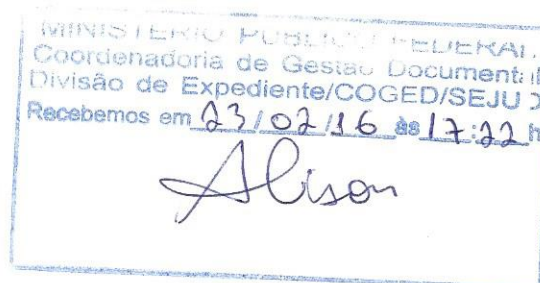 MINISTÉRIO PÚBLICO FEDERAL
Coordenadoria de Gestão Documental
Divisão de Expediente/COGED/SEJU
Recebemos em 23/02/16 às 17:22 h
Alison